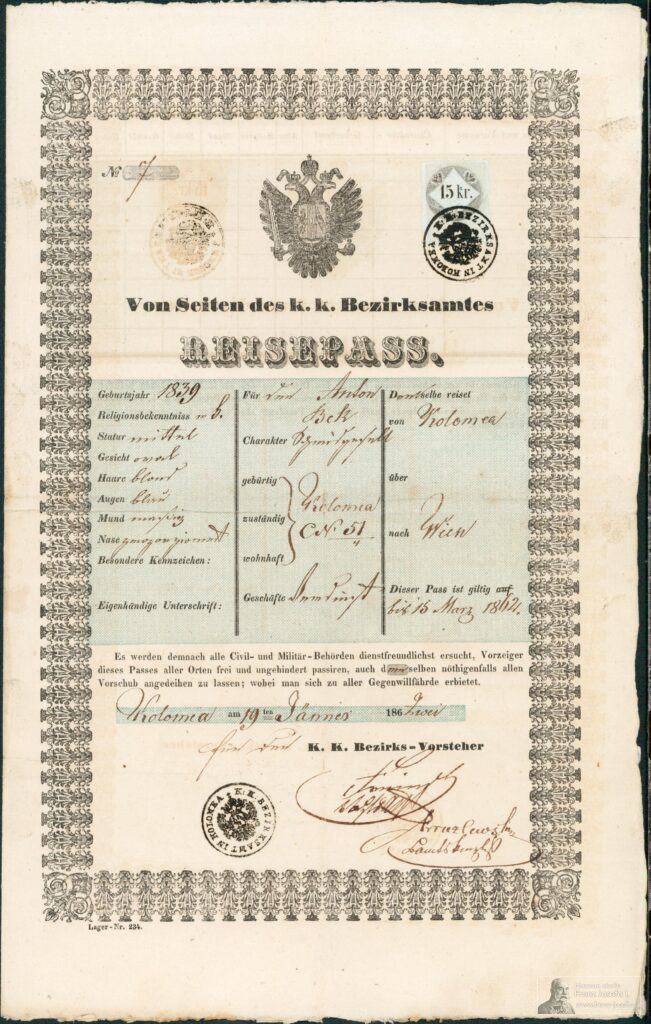 № 7
15 kr.
K. K. BEZIRKSAMT IN KOLOMEA
Von Seiten des k. k. Bezirksamtes
REISEPASS.
Geburtsjahr 1839
Religionsbekenntniss
Statur mittel
Gesicht oval
Haare blond
Augen blau
Mund mässig
Nase proporzionirt
Besondere Kennzeichen:
Eigenhändige Unterschrift:
Für den Anton
Bek
Charakter
gebürtig
zuständig
wohnhaft
Kolomea
CN 51
Geschäfte
Derselbe reiset
von Kolomea
über
nach Wien
Dieser Pass ist giltig auf
bis 15 März 1862.
Es werden demnach alle Civil- und Militär-Behörden dienstfreundlichst ersucht, Vorzeiger
dieses Passes aller Orten frei und ungehindert passiren, auch demselben nöthigenfalls allen
Vorschub angedeihen zu lassen; wobei man sich zu aller Gegenwillfährde erbietet.
Kolomea am 19ten Jänner 186 Zwei
für den K. K. Bezirks-Vorsteher
K. K. BEZIRKSAMT IN KOLOMEA
Lager-Nr. 234.
Franz Josefa I.